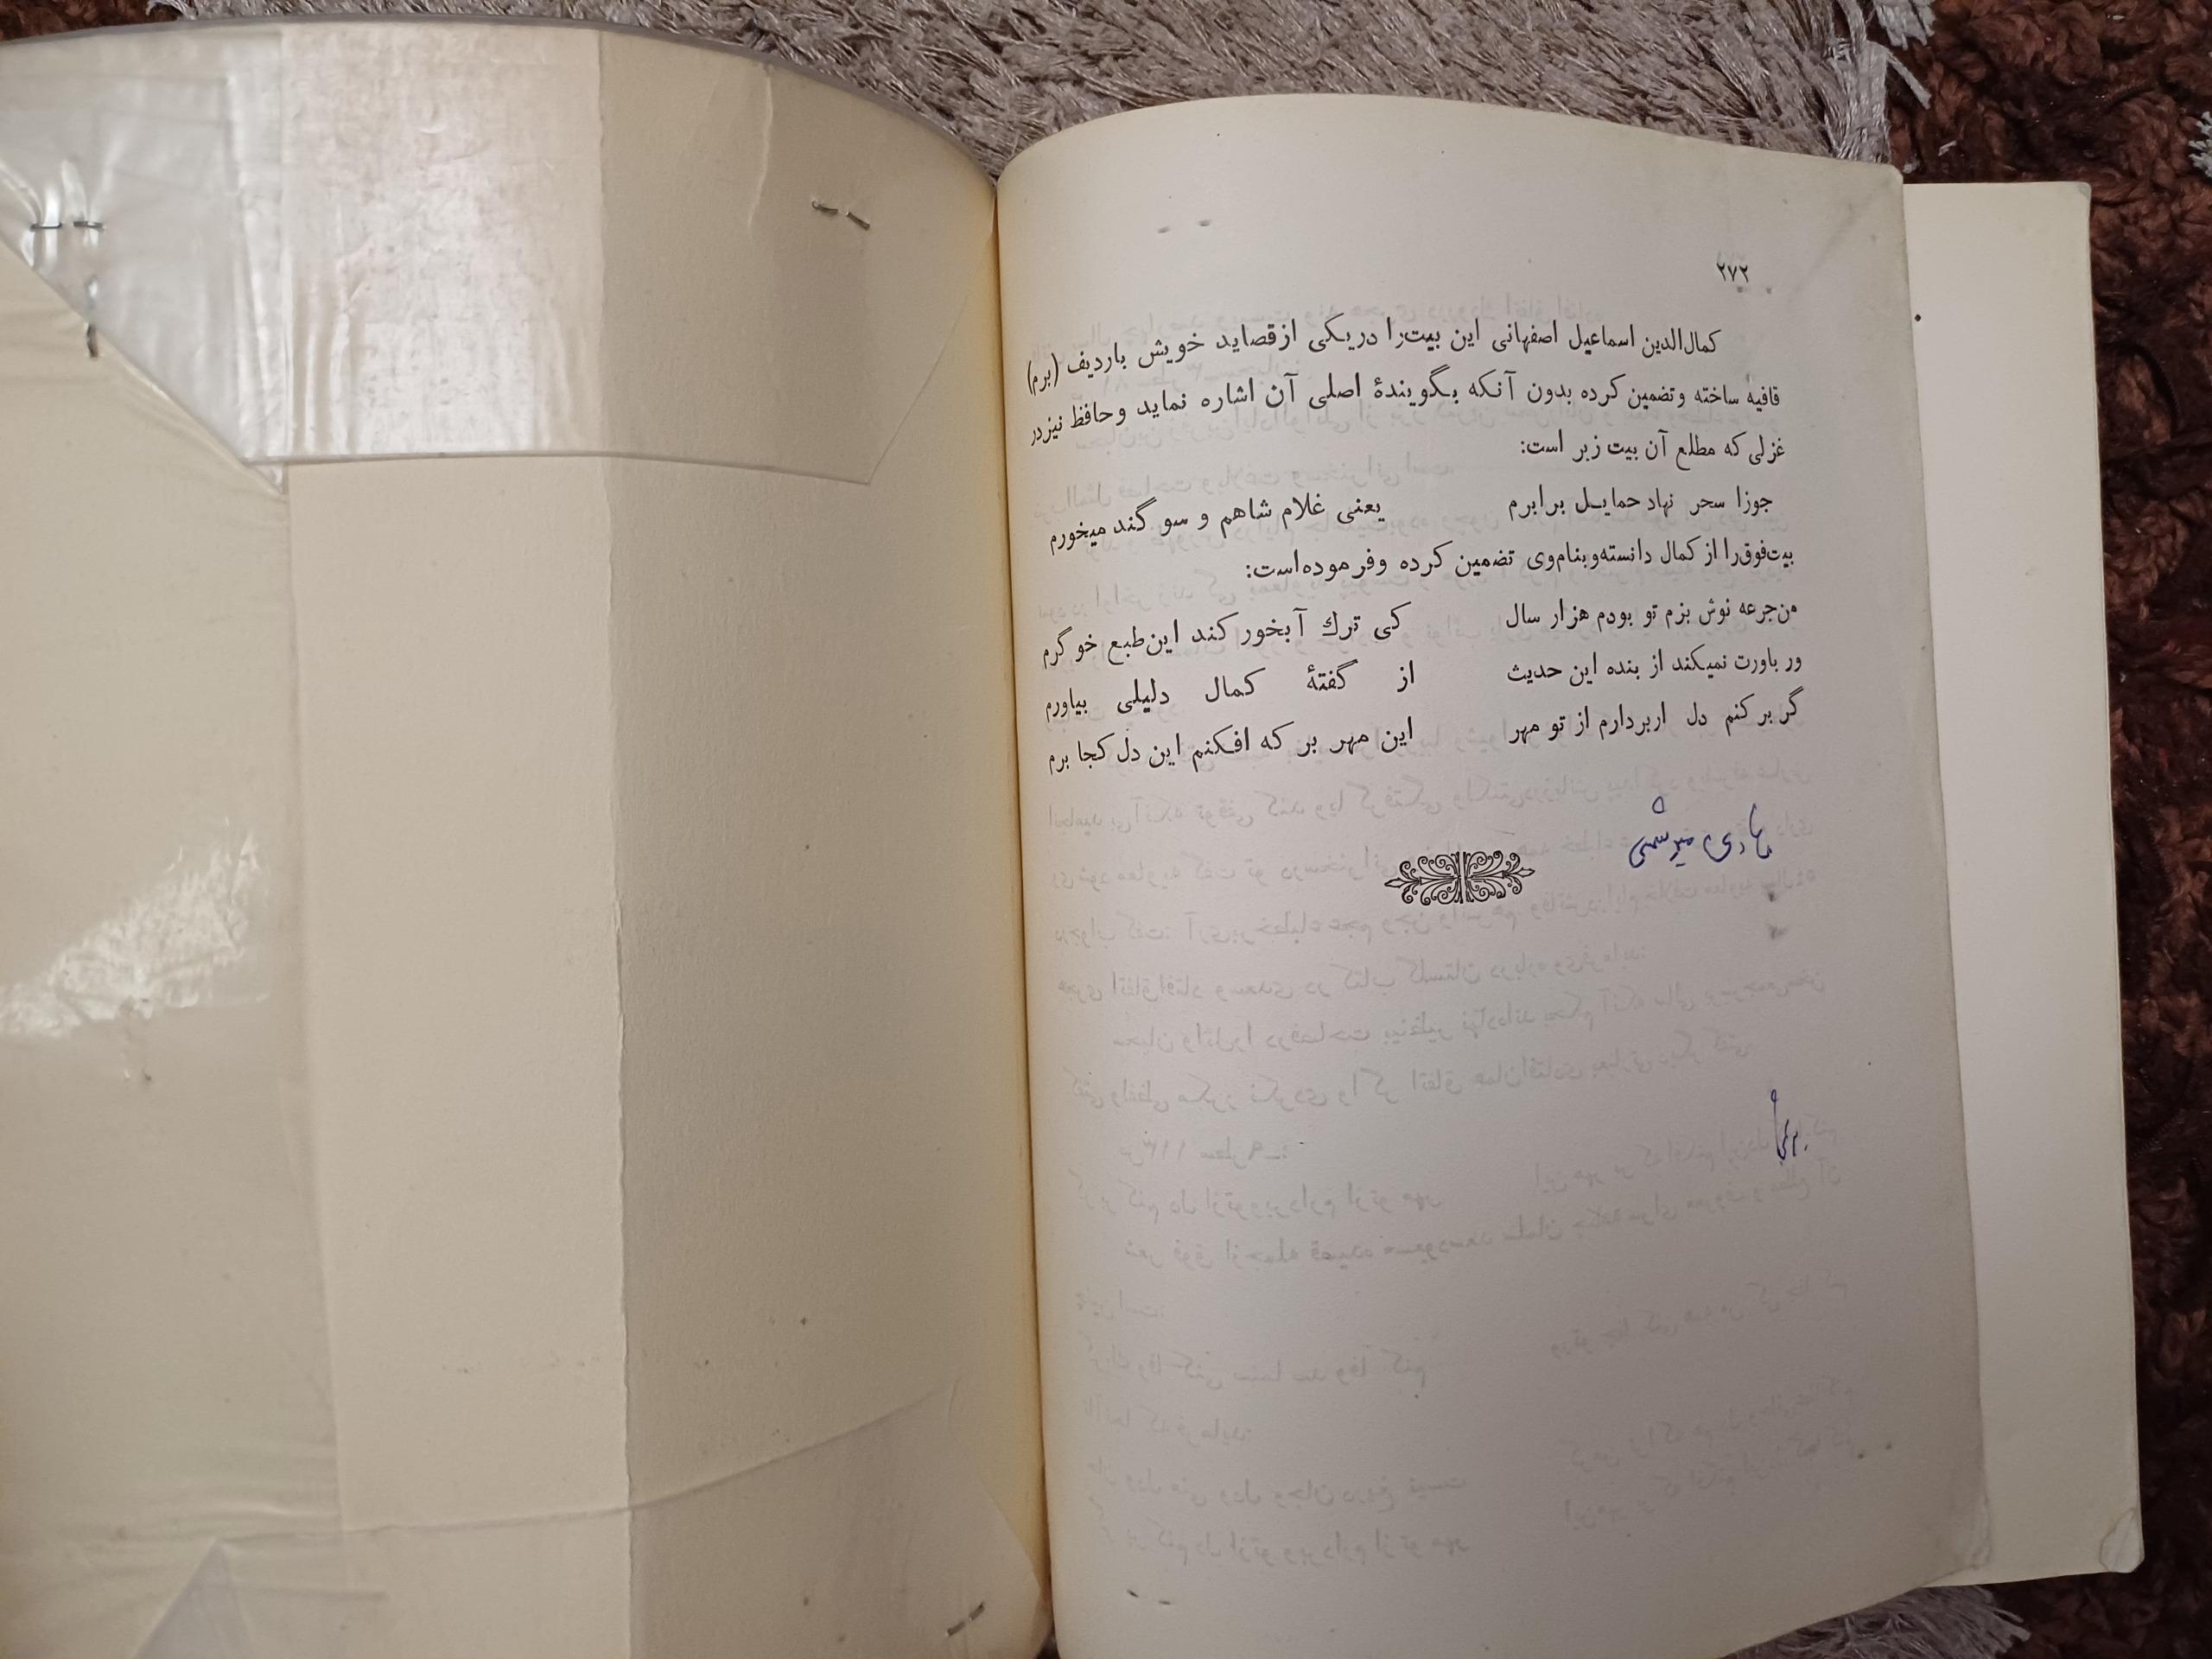 ۲۷۲
کمال‌الدین اسماعیل اصفهانی این بیت‌را دریکی ازقصاید خویش باردیف (برم)
قافیه ساخته وتضمین کرده بدون آنکه بگویندهٔ اصلی آن اشاره نماید وحافظ نیزدر
غزلی که مطلع آن بیت زبر است:
جوزا سحر نهاد حمایل برابرم یعنی غلام شاهم و سوگند میخورم
بیت‌فوق‌را از کمال دانسته‌وبنام‌وی تضمین کرده وفرموده‌است:
من‌جرعه نوش بزم تو بودم هزار سال کی ترك آبخور کند این‌طبع خوگرم
ور باورت نمیکند از بنده این حدیث از گفتهٔ کمال دلیلی بیاورم
گر برکنم دل اربردارم از تو مهر این مهر بر که افکنم این دل کجا برم
هادی میرشمسی